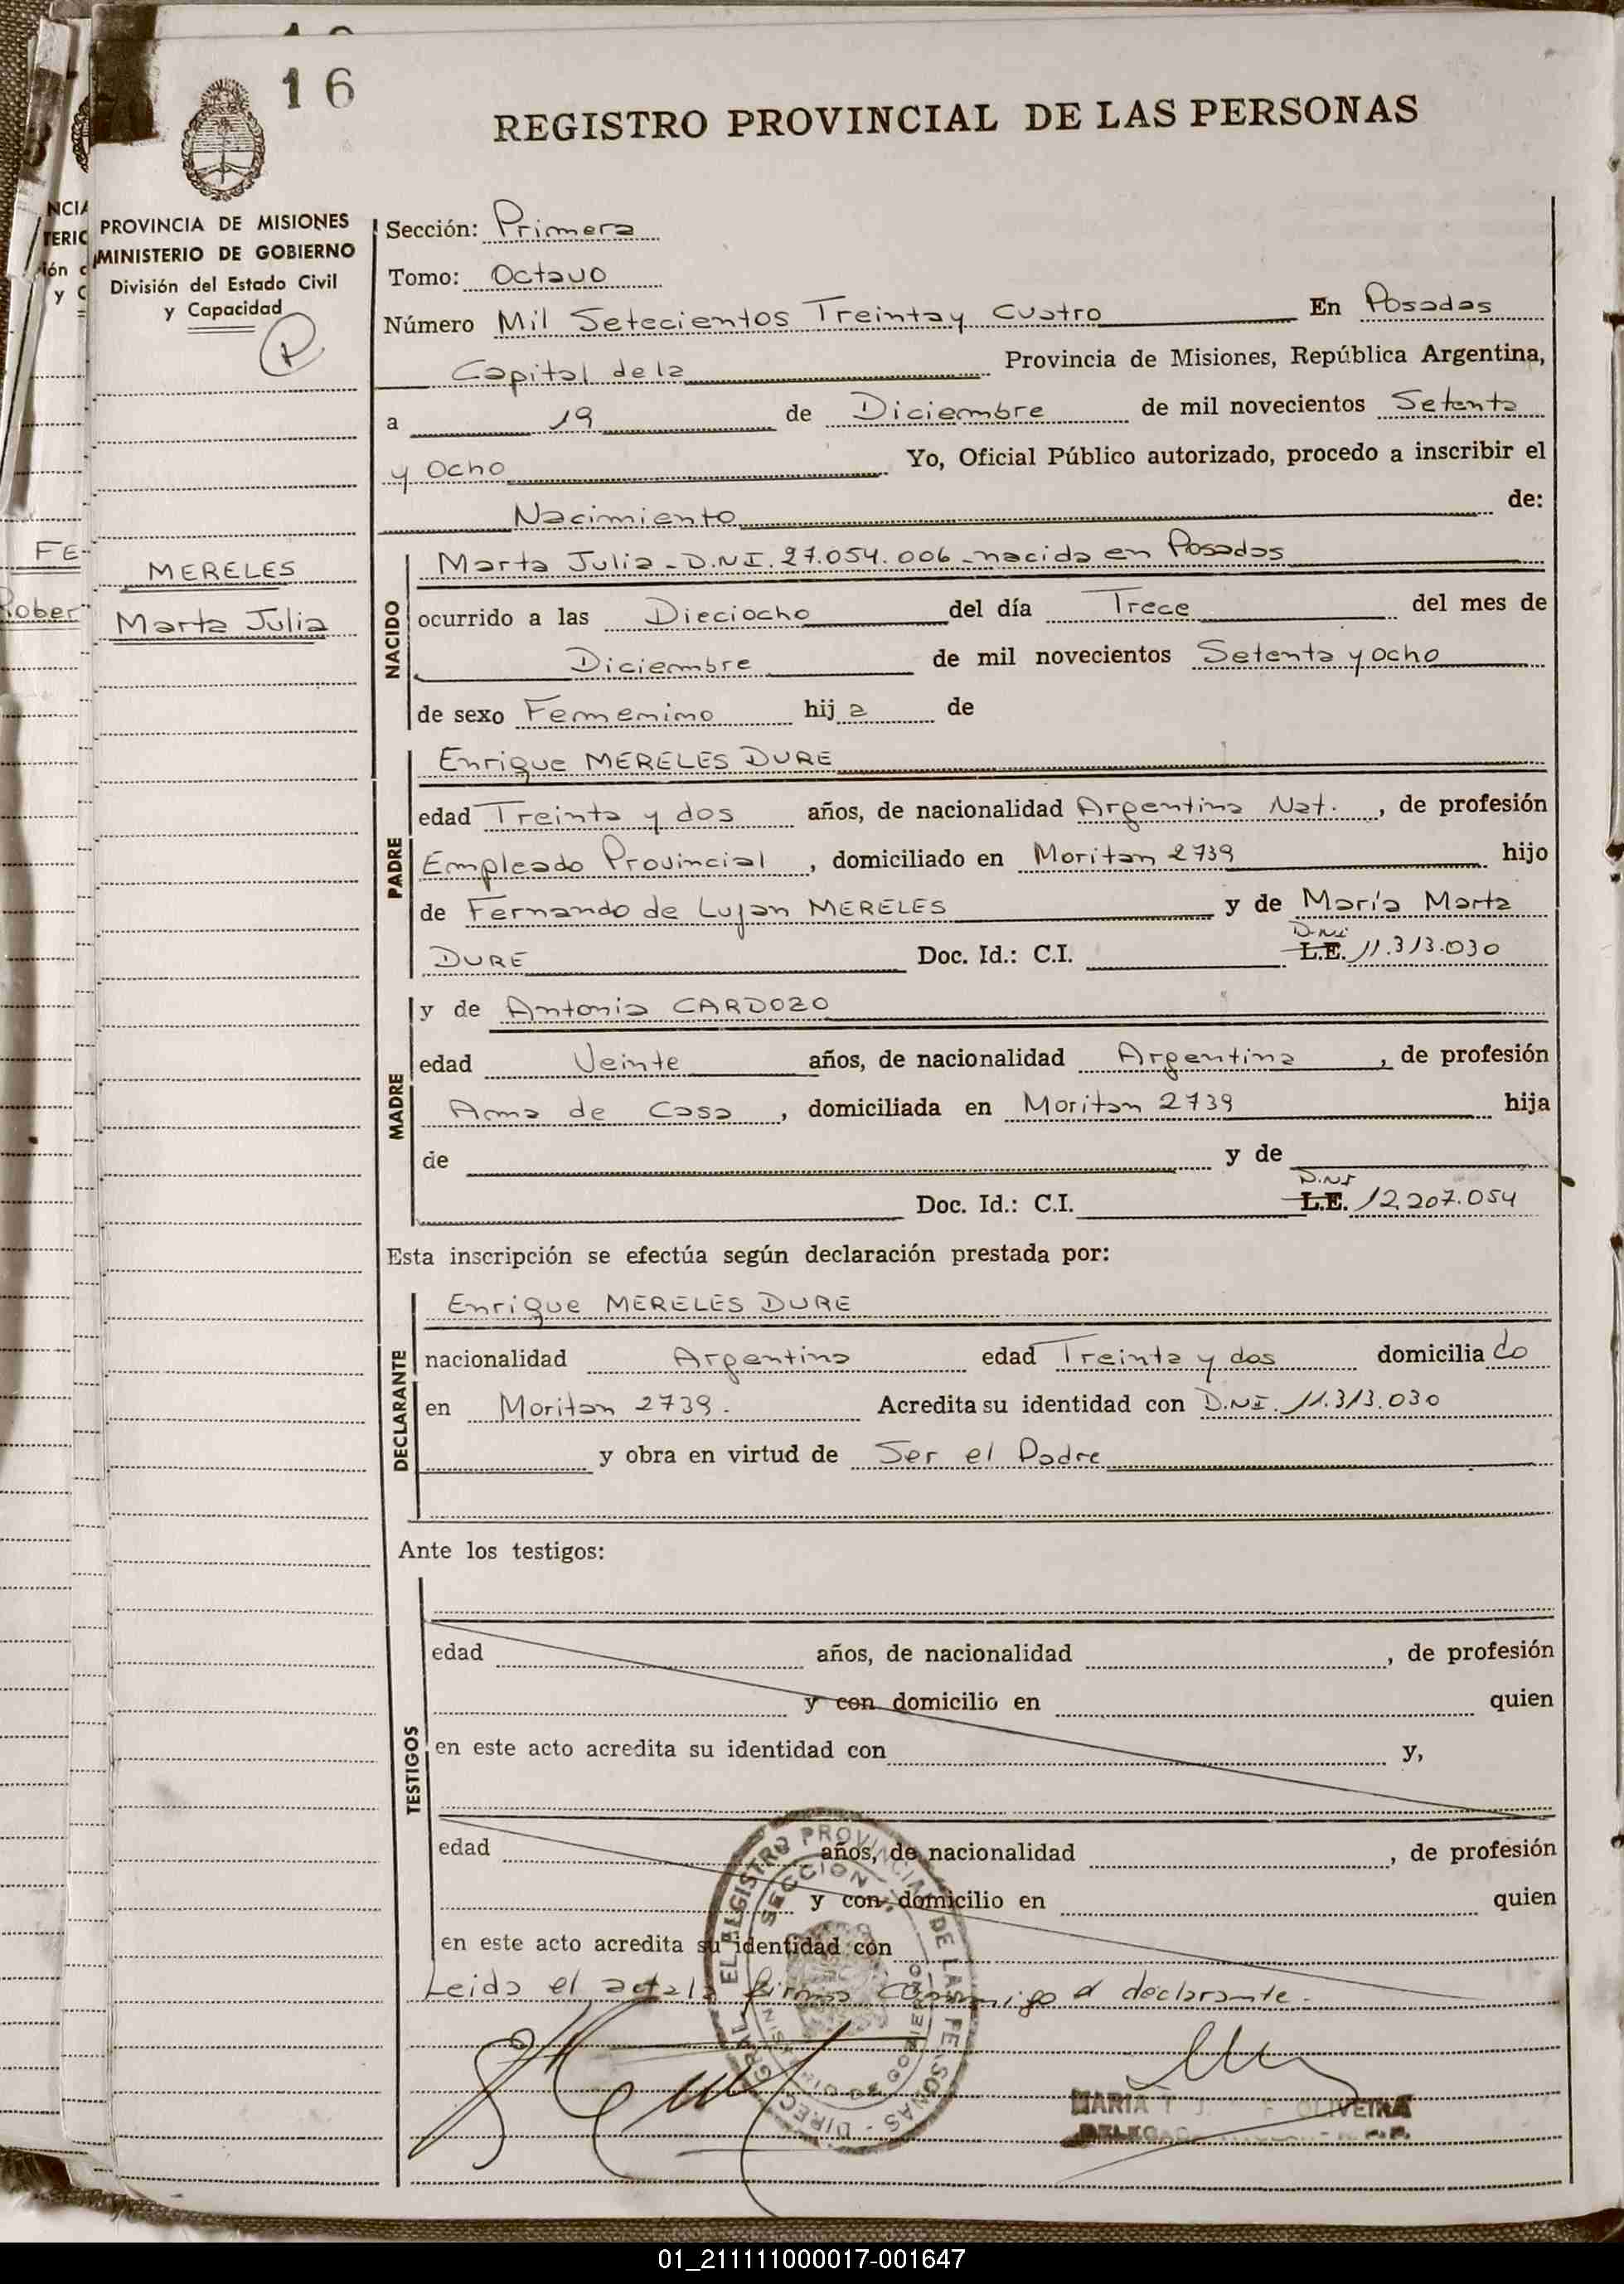 16
REGISTRO PROVINCIAL DE LAS PERSONAS
PROVINCIA DE MISIONES
MINISTERIO DE GOBIERNO
División del Estado Civil
y Capacidad
R
MERELES
Marta Julia
Sección: Primera
Tomo: Octavo
Número Mil Setecientos Treinta y Cuatro En Posadas
Capital de la Provincia de Misiones, República Argentina,
a 19 de Diciembre de mil novecientos Setenta
y Ocho Yo, Oficial Público autorizado, procedo a inscribir el
Nacimiento de:
NACIDO
Marta Julia - D.N.I. 27.054.006 - nacida en Posadas
ocurrido a las Dieciocho del día Trece del mes de
Diciembre de mil novecientos Setenta y ocho
de sexo Femenino hija de
PADRE
Enrique MERELES DURE
edad Treinta y dos años, de nacionalidad Argentina Nat. , de profesión
Empleado Provincial , domiciliado en Moritan 2739 hijo
de Fernando de Lujan MERELES y de María Marta
DURE Doc. Id.: C.I. L.E. D.N.I 11.313.030
MADRE
y de Antonia CARDOZO
edad Veinte años, de nacionalidad Argentina , de profesión
Ama de Casa , domiciliada en Moritan 2739 hija
de y de
Doc. Id.: C.I. L.E. D.N.I 12.207.054
Esta inscripción se efectúa según declaración prestada por:
DECLARANTE
Enrique MERELES DURE
nacionalidad Argentina edad Treinta y dos domiciliado
en Moritan 2739. Acredita su identidad con D.N.I. 11.313.030
y obra en virtud de Ser el Padre
Ante los testigos:
TESTIGOS
edad años, de nacionalidad , de profesión
y con domicilio en quien
en este acto acredita su identidad con y,
edad años, de nacionalidad , de profesión
y con domicilio en quien
en este acto acredita su identidad con
Leida el acta la firma conmigo el declarante.
DIRECC GRAL. EL REGISTRO PROVINCIAL DE LAS PERSONAS
SECCION
MARIA OLIVEIRA
01_211111000017-001647